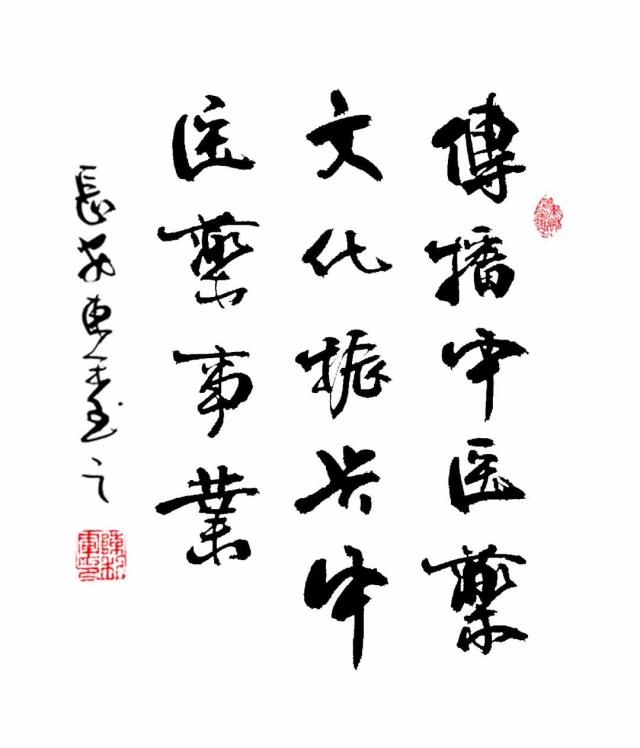 傳播中医藥
文化振兴中
医藥事業
長安